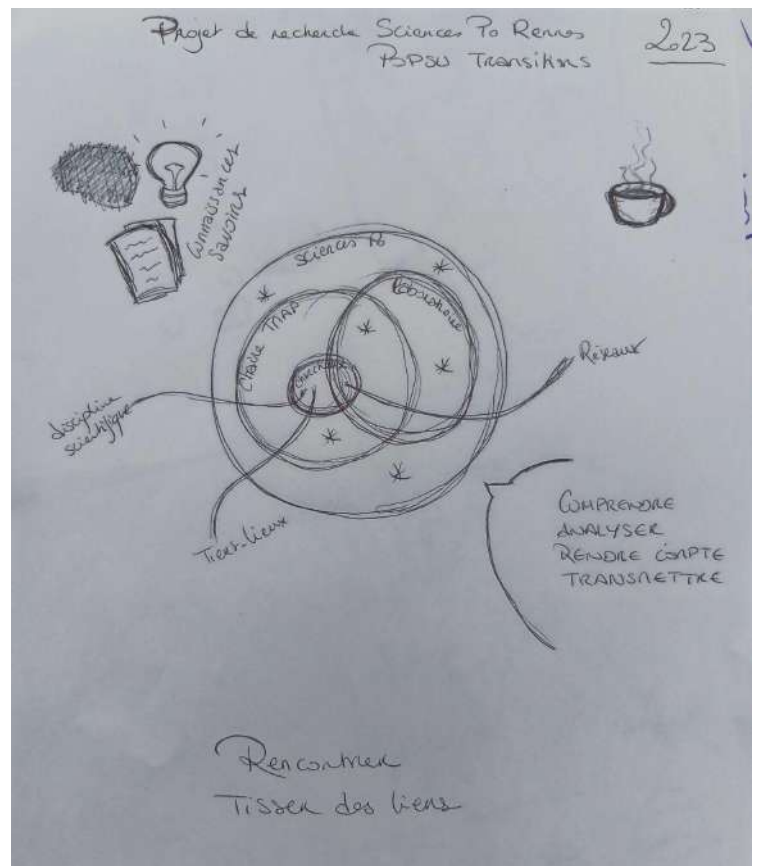 Projet de recherche Sciences Po Rennes
2023
PSPSU Transitions
Connaissances
Savoirs
Sciences Po
Chaire TMAP
Laboratoire
Chercheur
Réseaux
discipline
scientifique
Tiers-lieux
COMPRENDRE
ANALYSER
RENDRE COMPTE
TRANSMETTRE
Rencontrer
Tisser des liens